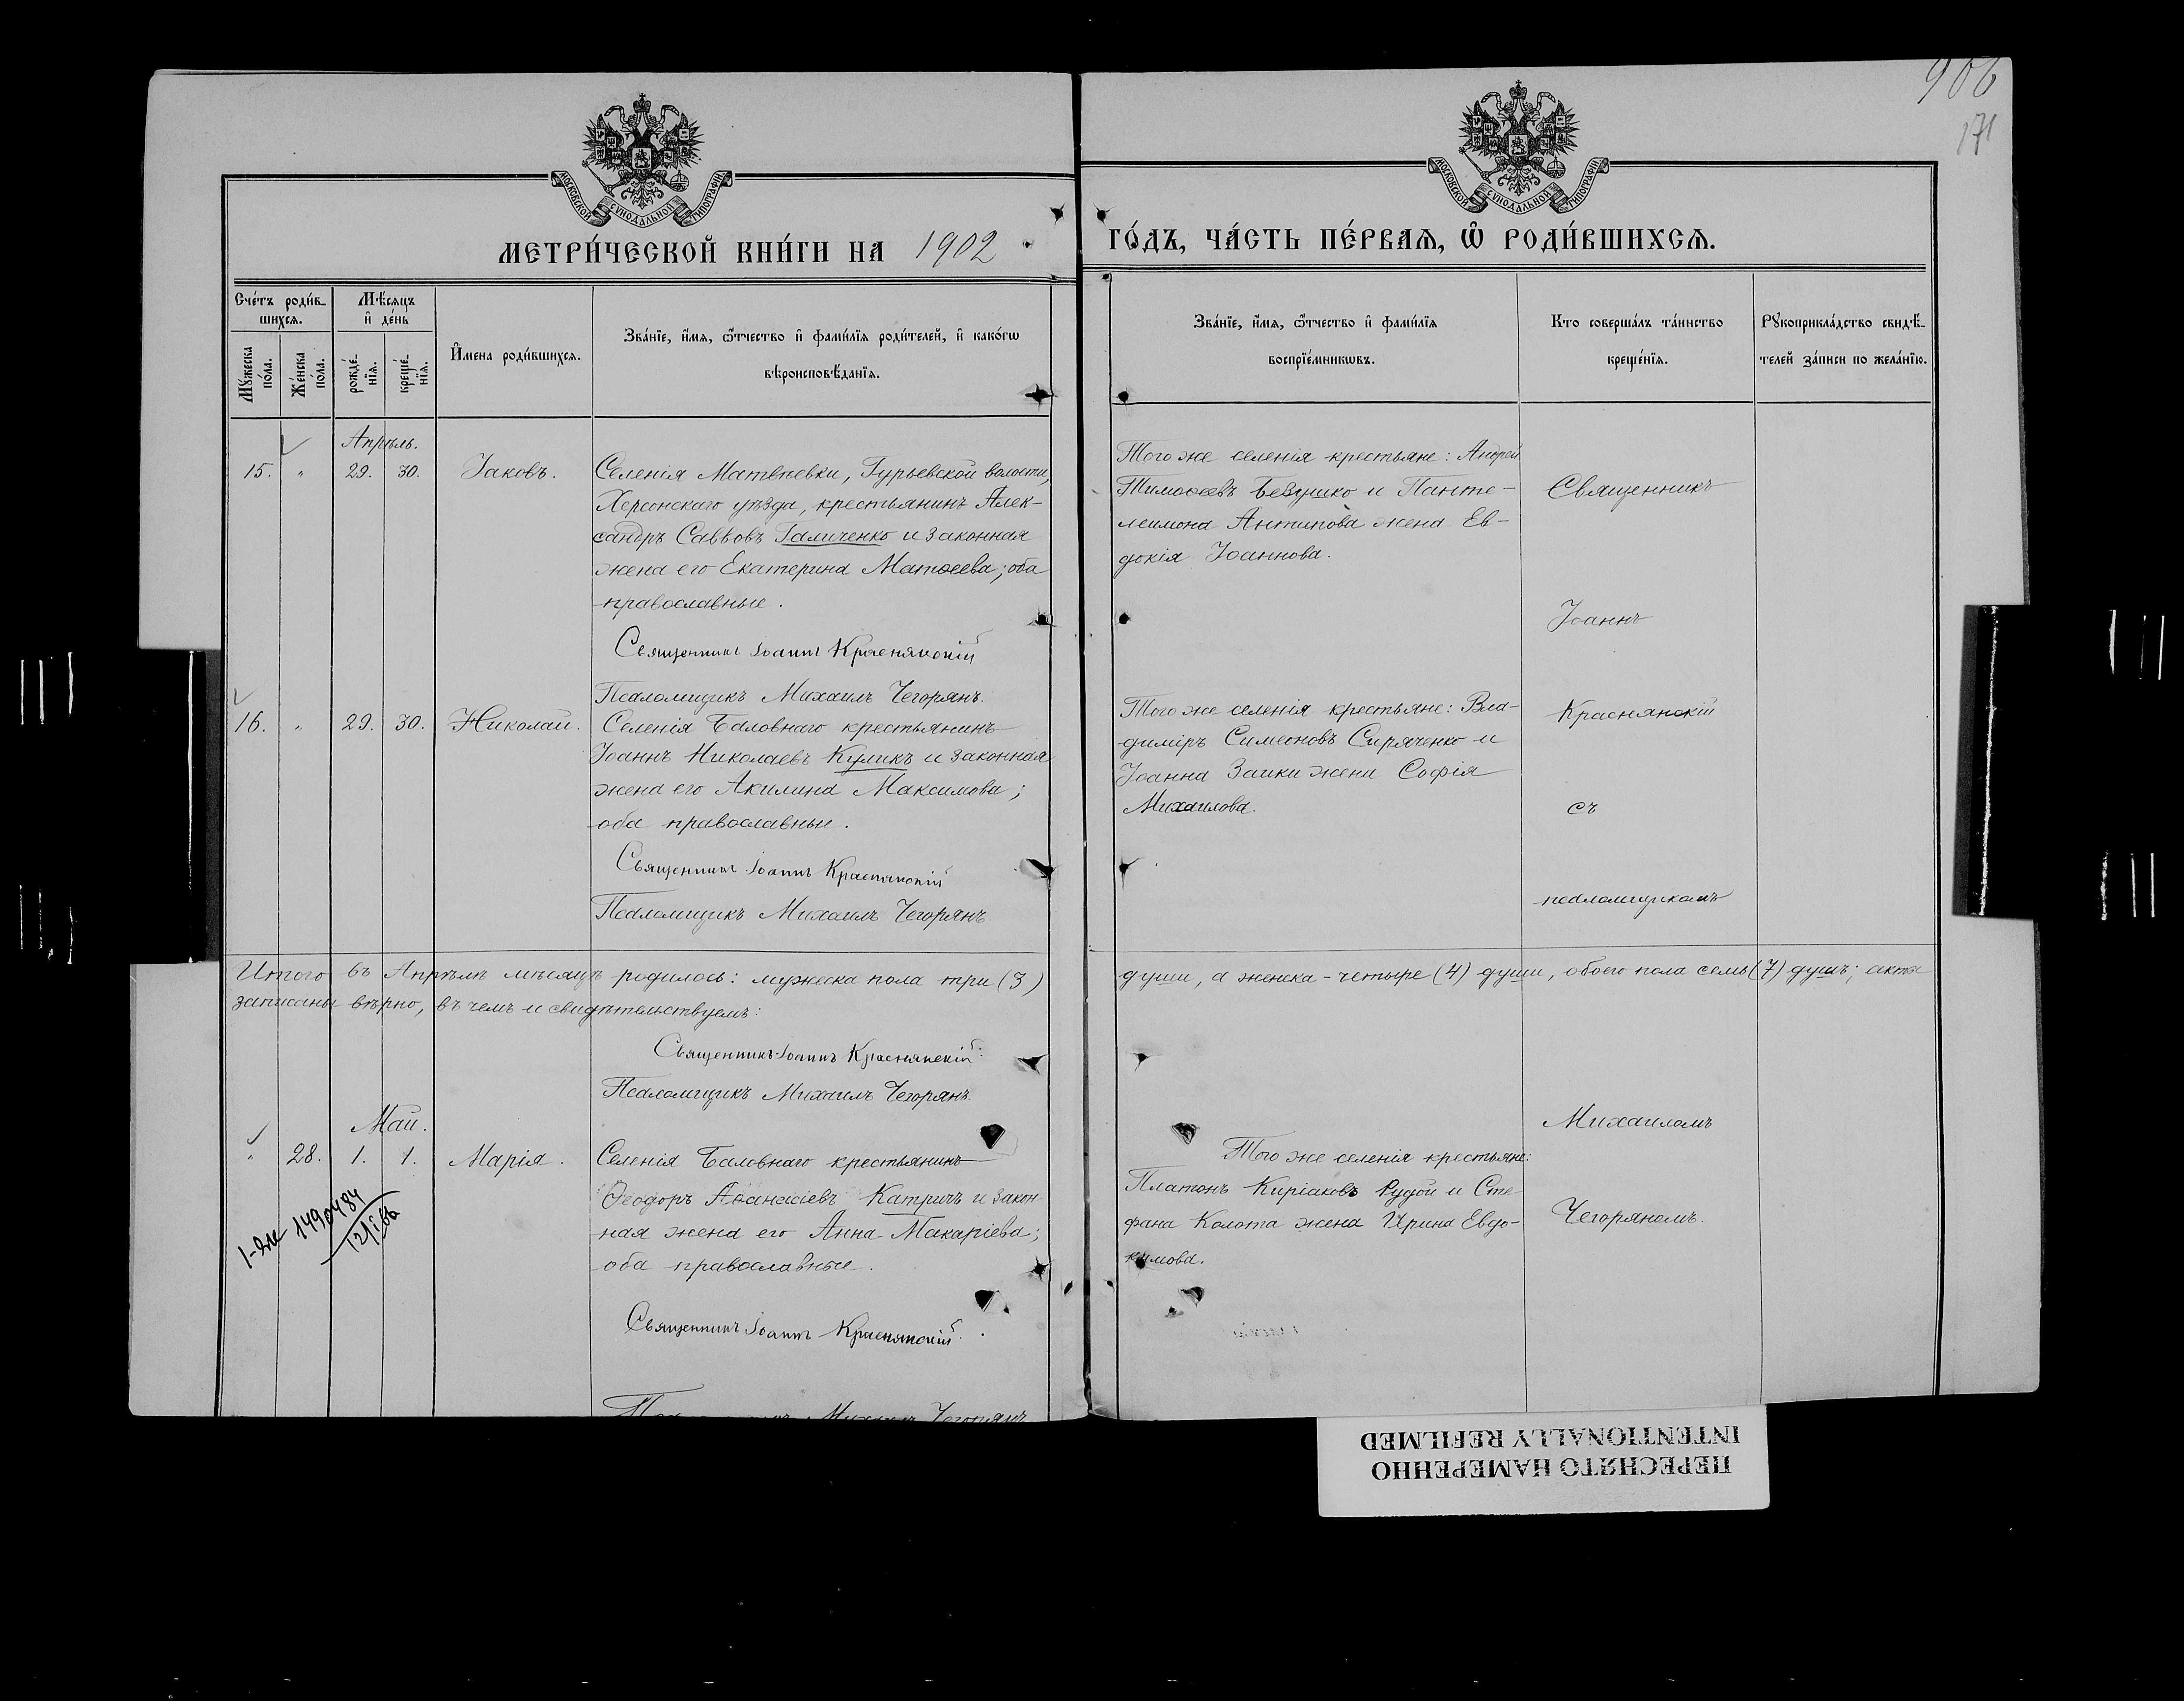 906
171
МОСКОВСКОЙ СѴНОДАЛЬНОЙ ТИПОГРАФІИ
МОСКОВСКОЙ СѴНОДАЛЬНОЙ ТИПОГРАФІИ
МЕТРИ́ЧЕСКОЙ КНИ́ГИ НА 1902
ГО́ДЪ, ЧА́СТЬ ПЕ́РВАѦ, Ѡ РОДИ́ВШИХСѦ.
Сче́тъ роди́в-
шихсѧ.
Мꙋжеска по́ла.
Же́нска по́ла.
Мѣ́сѧцъ
и҆ де́нь
рожде́-
нїѧ.
креще́-
нїѧ.
И҆мена роди́вшихсѧ.
Зва́нїе, и҆́мѧ, ѻ҆́тчество и҆ фами́лїѧ роди́телей, и҆ како́гѡ
вѣроисповѣ́данїѧ.
Зва́нїе, и҆́мѧ, ѻ҆́тчество и҆ фами́лїѧ
воспрїе́мникѡвъ.
Кто соверша́лъ та́инство
креще́нїѧ.
Рꙋкоприкла́дство свидѣ́-
телей за́писи по жела́нїю.
Апрѣль.
15. " 29. 30. Іаковъ.
Селенія Матвѣевки, Гурьевской волости,
Херсонскаго уѣзда, крестьянинъ Алек-
сандръ Саввовъ Галиченко и законная
жена его Екатерина Матѳеева; оба
православные.
Священникъ Іоаннъ Краснянскій
Псаломщикъ Михаилъ Чегорянъ.
Того же селенія крестьяне: Андрей
Тимоѳеевъ Бевушко и Панте-
леимона Антипова жена Ев-
докія Іоаннова.
Священникъ
Іоаннъ
16. " 29. 30. Николай.
Селенія Баловнаго крестьянинъ
Іоаннъ Николаевъ Куликъ и законная
жена его Акилина Максимова;
оба православные.
Священникъ Іоаннъ Краснянскій
Псаломщикъ Михаилъ Чегорянъ
Того же селенія крестьяне: Вла-
диміръ Симеоновъ Сиряченко и
Іоанна Заики жена Софія
Михаилова.
Краснянскій
съ
псаломщикомъ
Итого въ Апрѣлѣ мѣсяцѣ родилось: мужеска пола три (3)
души, а женска - четыре (4) души, обоего пола семь (7) душъ; акты
записаны вѣрно, въ чемъ и свидѣтельствуемъ:
Священникъ Іоаннъ Краснянскій
Псаломщикъ Михаилъ Чегорянъ
Май.
" 28. 1. 1. Марія.
Селенія Баловнаго крестьянинъ
Ѳеодоръ Аѳанасіевъ Катричъ и закон-
ная жена его Анна Макаріева;
оба православные.
Священникъ Іоаннъ Краснянскій.
Михаилъ Чегорянъ
Того же селенія крестьяне:
Платонъ Киріаковъ Рудой и Сте-
фана Колота жена Ирина Евдо-
кимова.
Михаиломъ
Чегоряномъ.
1490484
ПЕРЕСНЯТО НАМЕРЕННО
INTENTIONALLY REFILMED